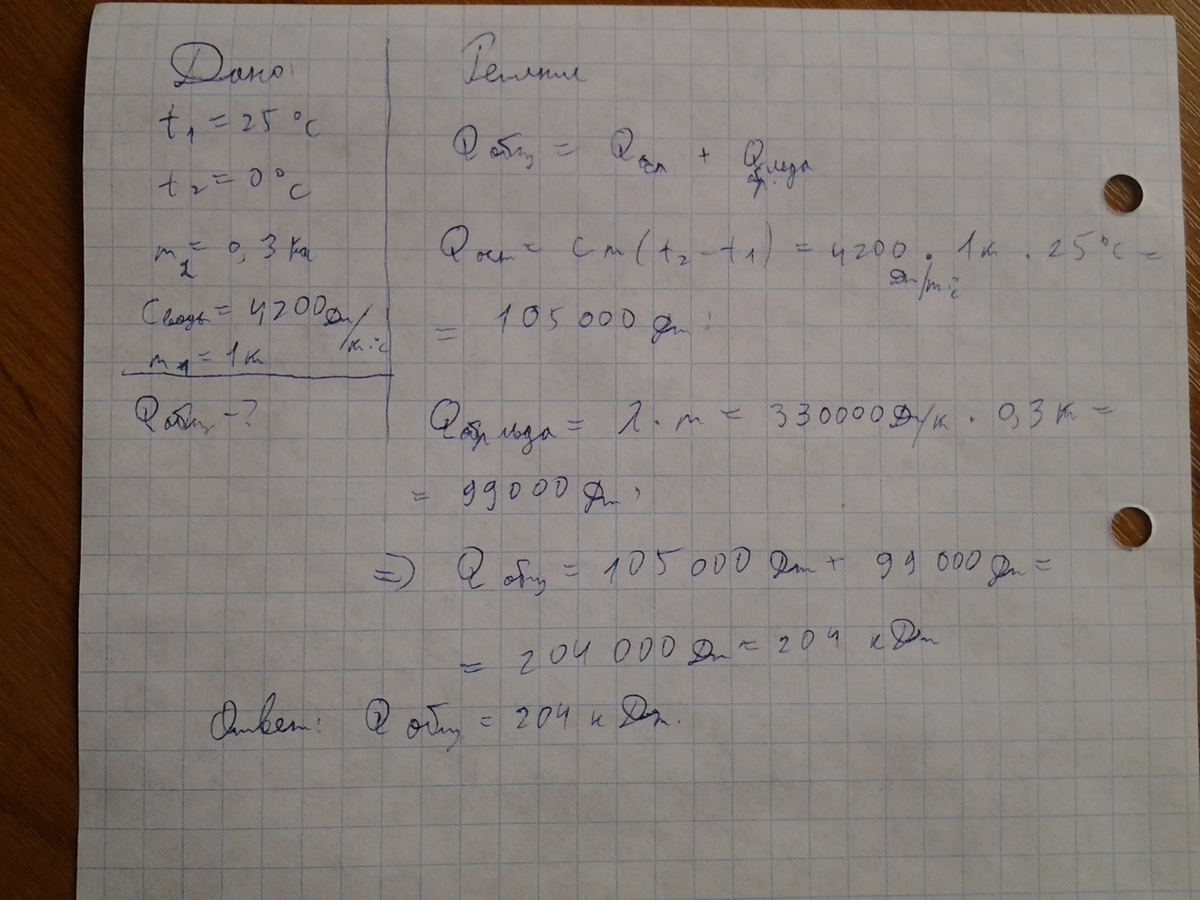 Дано:
t1 = 25 °C
t2 = 0 °C
m2 = 0,3 кг
Cводы = 4200 Дж/кг·°C
m1 = 1 кг
Qобщ - ?
Решение
Qобщ = Qост + Qобр. льда
Qост = cm(t2 - t1) = 4200 Дж/кг·°C · 1кг · 25°C =
= 105 000 Дж;
Qобр льда = λ · m = 330000 Дж/кг · 0,3 кг =
= 99000 Дж;
=> Qобщ = 105 000 Дж + 99 000 Дж =
= 204 000 Дж = 204 кДж
Ответ: Qобщ = 204 кДж.